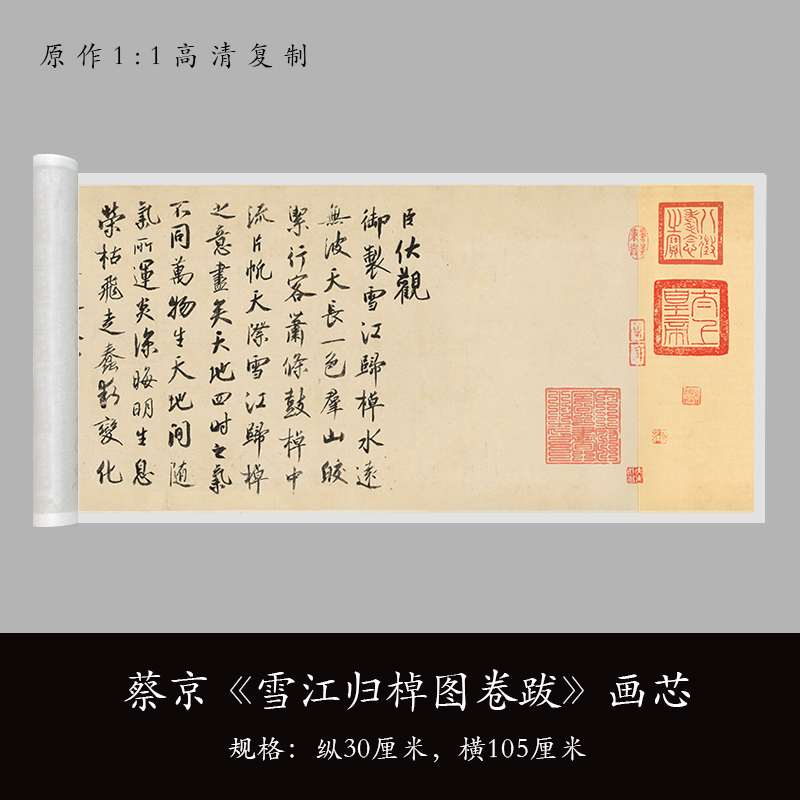 原作1:1高清复制
臣伏觀
御製雪江歸棹水遠
無波天長一色羣山皎
潔行客蕭條鼓棹中
流片帆天際雪江歸棹
之意盡矣天地四時之氣
不同萬物生天地間隨
氣所運炎涼晦明生息
榮枯飛走蠢動變化
八徵耄念之寶
太上皇帝
蔡京《雪江归棹图卷跋》画芯
规格：纵30厘米，横105厘米